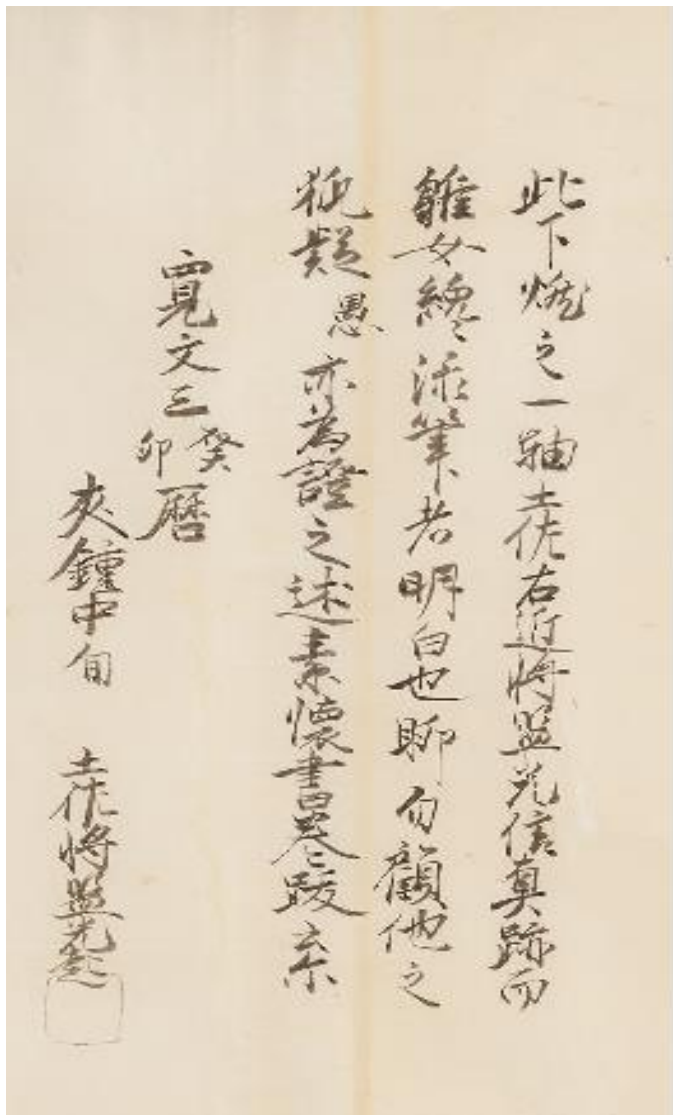 此下燃之一軸土佐右近将監光信真跡而
雖女繪添筆者明白也聊勿顧他之
狐疑愚亦為證之述素懐書巻跋系
寛文三癸卯暦
夾鐘中旬 土佐将監光起